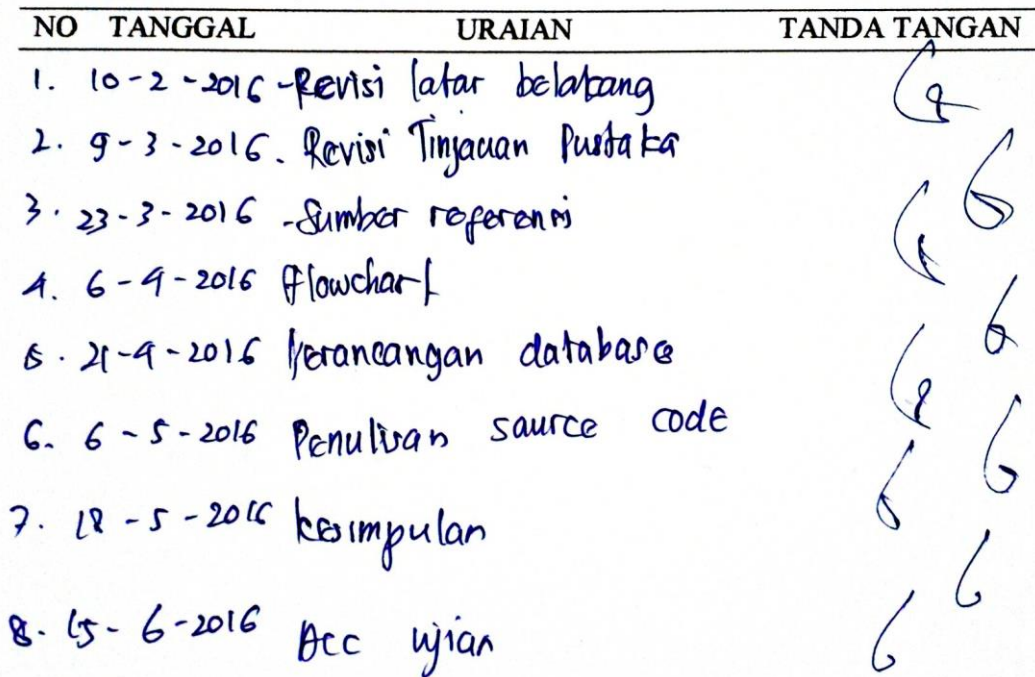 NO TANGGAL URAIAN TANDA TANGAN
1. 10-2-2016 - Revisi latar belakang
2. 9-3-2016. Revisi Tinjauan Pustaka
3. 23-3-2016 - Sumber referensi
4. 6-4-2016 Flowchart
5. 21-4-2016 Perancangan database
6. 6-5-2016 Penulisan saurce code
7. 18-5-2016 kesimpulan
8. 15-6-2016 Acc ujian